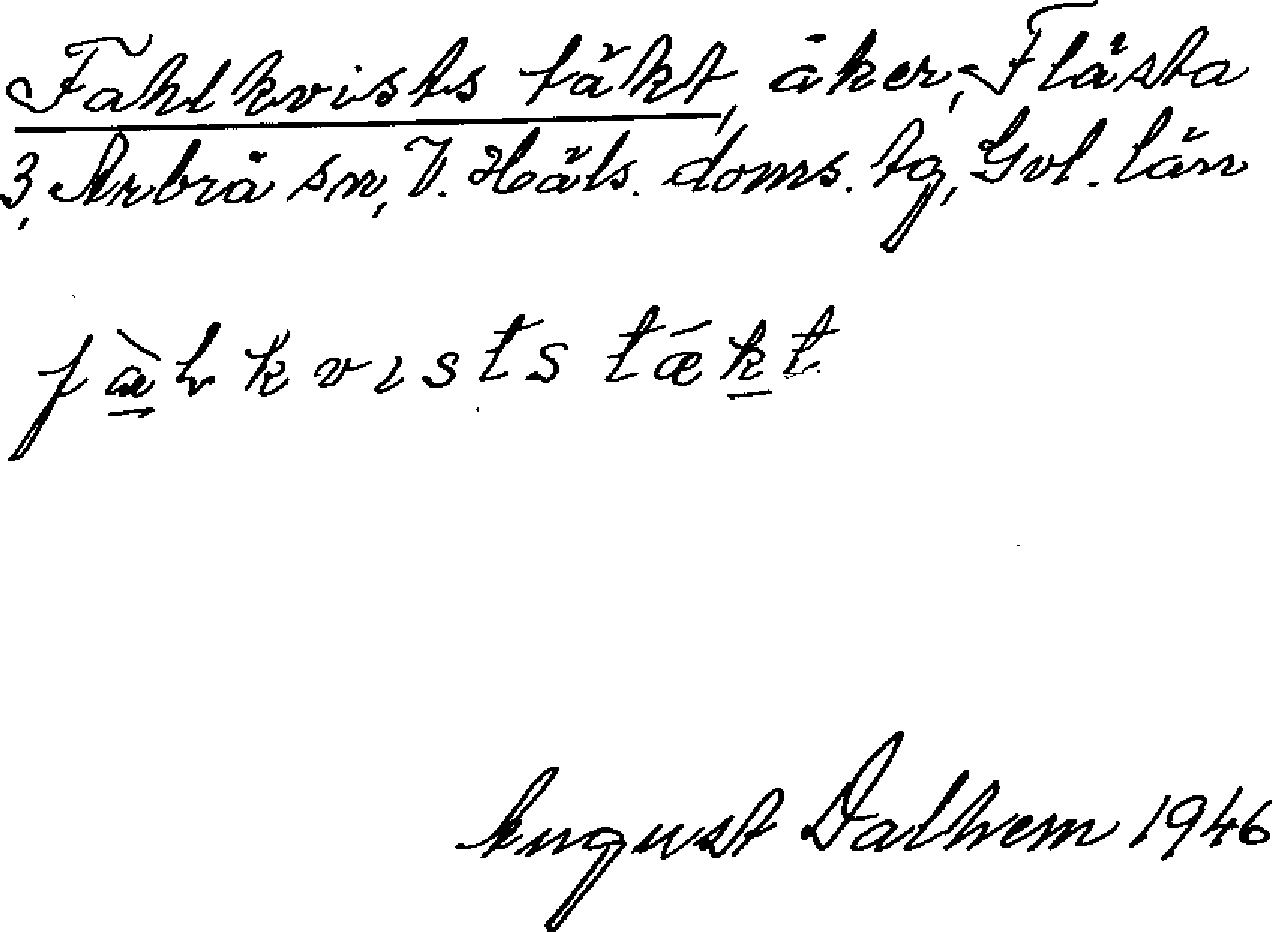 Fahlkvists täkt, åker, Flästa
3, Arbrå sn, V. Häls. doms. tg, Gvl. län
fàlkvɪsts tǽkt
August Dalhem 1946